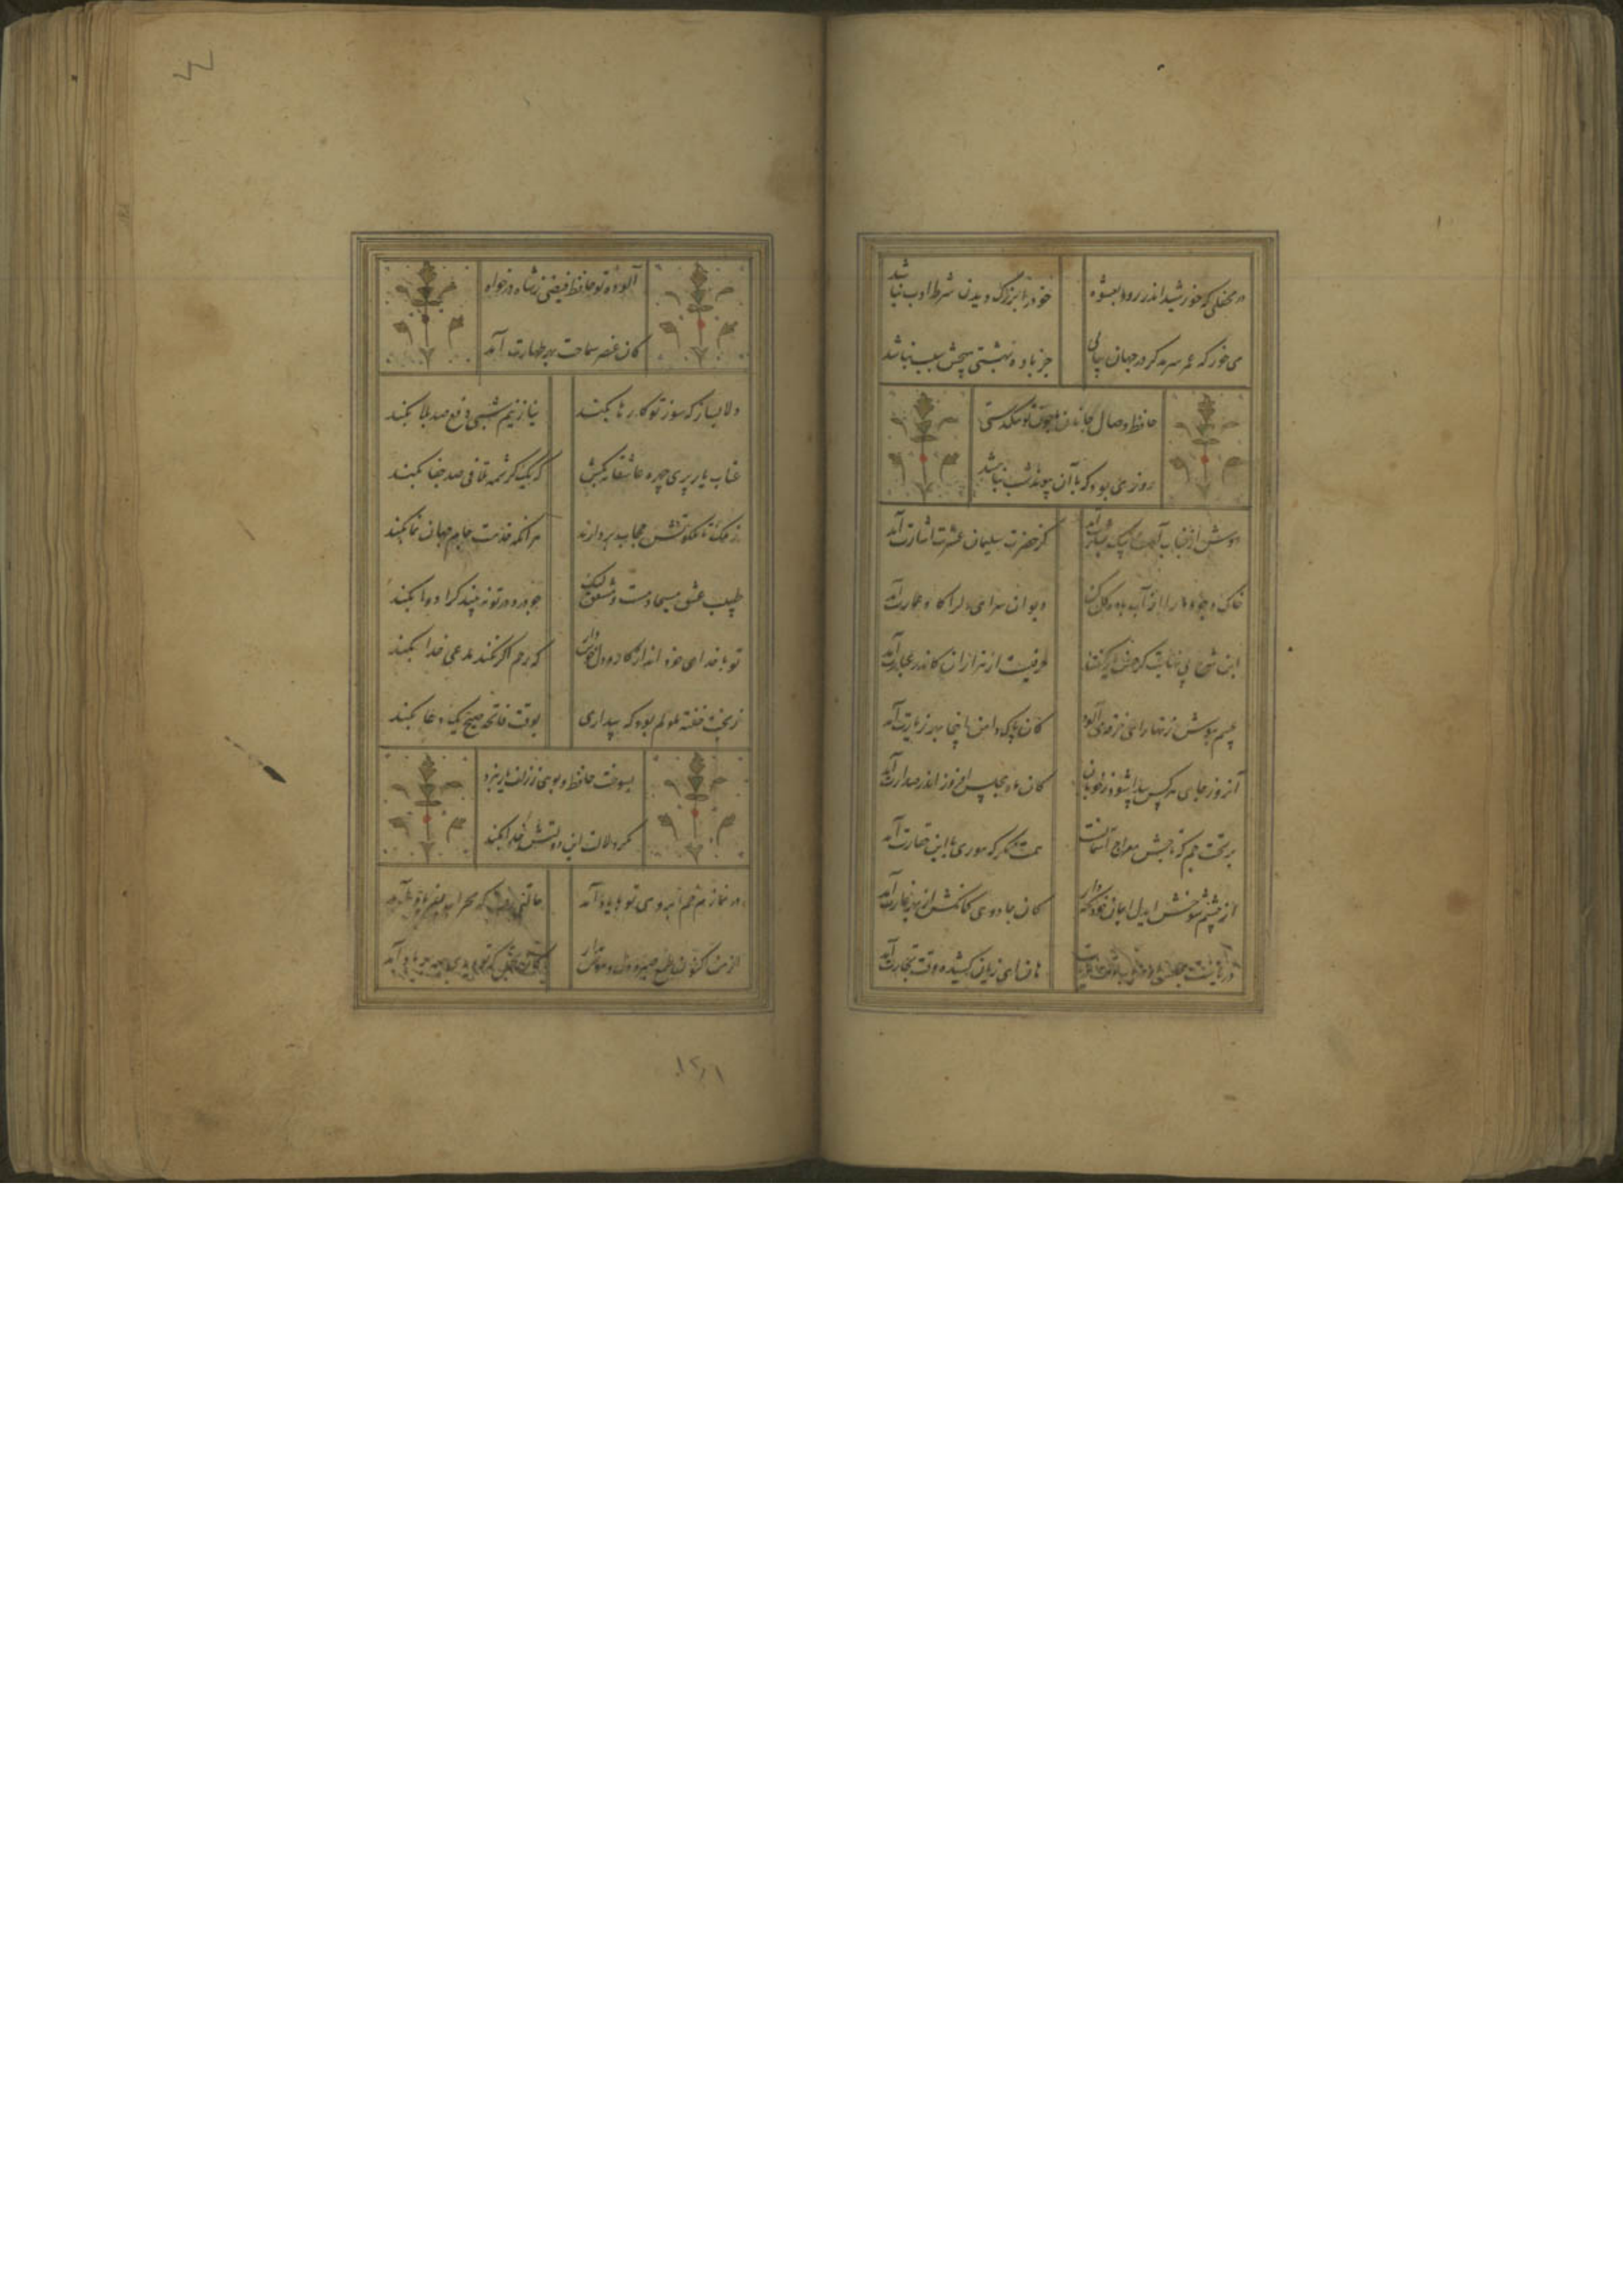 در محفلی که خورشید اندر رود بعشوه خود را بزرگ دیدن شرط ادب نباشد
می خور که عمر سرمد کر در جهان یابی جز باده بهشتی هیچش سبب نباشد
حافظ وصال جانان با چون تو تنکدستی
روزی بود که با آن پیوند شب نباشد
دوش از جناب آصف پیک بشارت آمد کز حضرت سلیمان عشرت اشارت آمد
خاک وجود ما را از آب باده کل کن ویران سرای دلرا کاه عمارت آمد
این شرح بی نهایت کز حسن یار کفتند حرفیست از هزاران کاندر عبارت آمد
عیبم بپوش زنهار ای خرقه می آلود کان پاک دامن اینجا بهر زیارت آمد
امروز جای هر کس پیدا شود ز خوبان کان ماه مجلس افروز اندر صدارت آمد
بر تخت جم که تاجش معراج آسمانست همت نکر که موری با این حقارت آمد
از چشم شوخش ایدل ایمان خود نکه دار کان جادوی کمانکش از بهر غارت آمد
دریاست مجلس شاه دریاب وقت دریاب هان ای زیان کشیده وقت تجارت آمد
آلوده تو حافظ فیضی ز شاه درخواه
کان عنصر سماحت بهر طهارت آمد
دلا بساز که سوز تو کارها بکند نیاز نیم شبی دفع صد بلا بکند
عتاب یار پری چهره عاشقانه بکش که یک کرشمه تلافی صد جفا بکند
ز ملک تا ملکوتش حجاب بردارند هر آنکه خدمت جام جهان نما بکند
طبیب عشق مسیحا دمست و مشفق لیک چو درد در تو نبیند کرا دوا بکند
تو با خدای خود انداز کار و دل خوش دار که رحم اکر نکند مدعی خدا بکند
ز بخت خفته ملولم بود که بیداری بوقت فاتحه صبح یک دعا بکند
بسوخت حافظ و بویی ز زلف یار نبرد
مکر دلالت این دولتش صبا بکند
در نماز خم ابروی تو با یاد آمد حالتی رفت که محراب بفریاد آمد
از من اکنون طمع صبر و دل و هوش مدار کان تحمل که تو دیدی همه بر باد آمد
۱۲۱